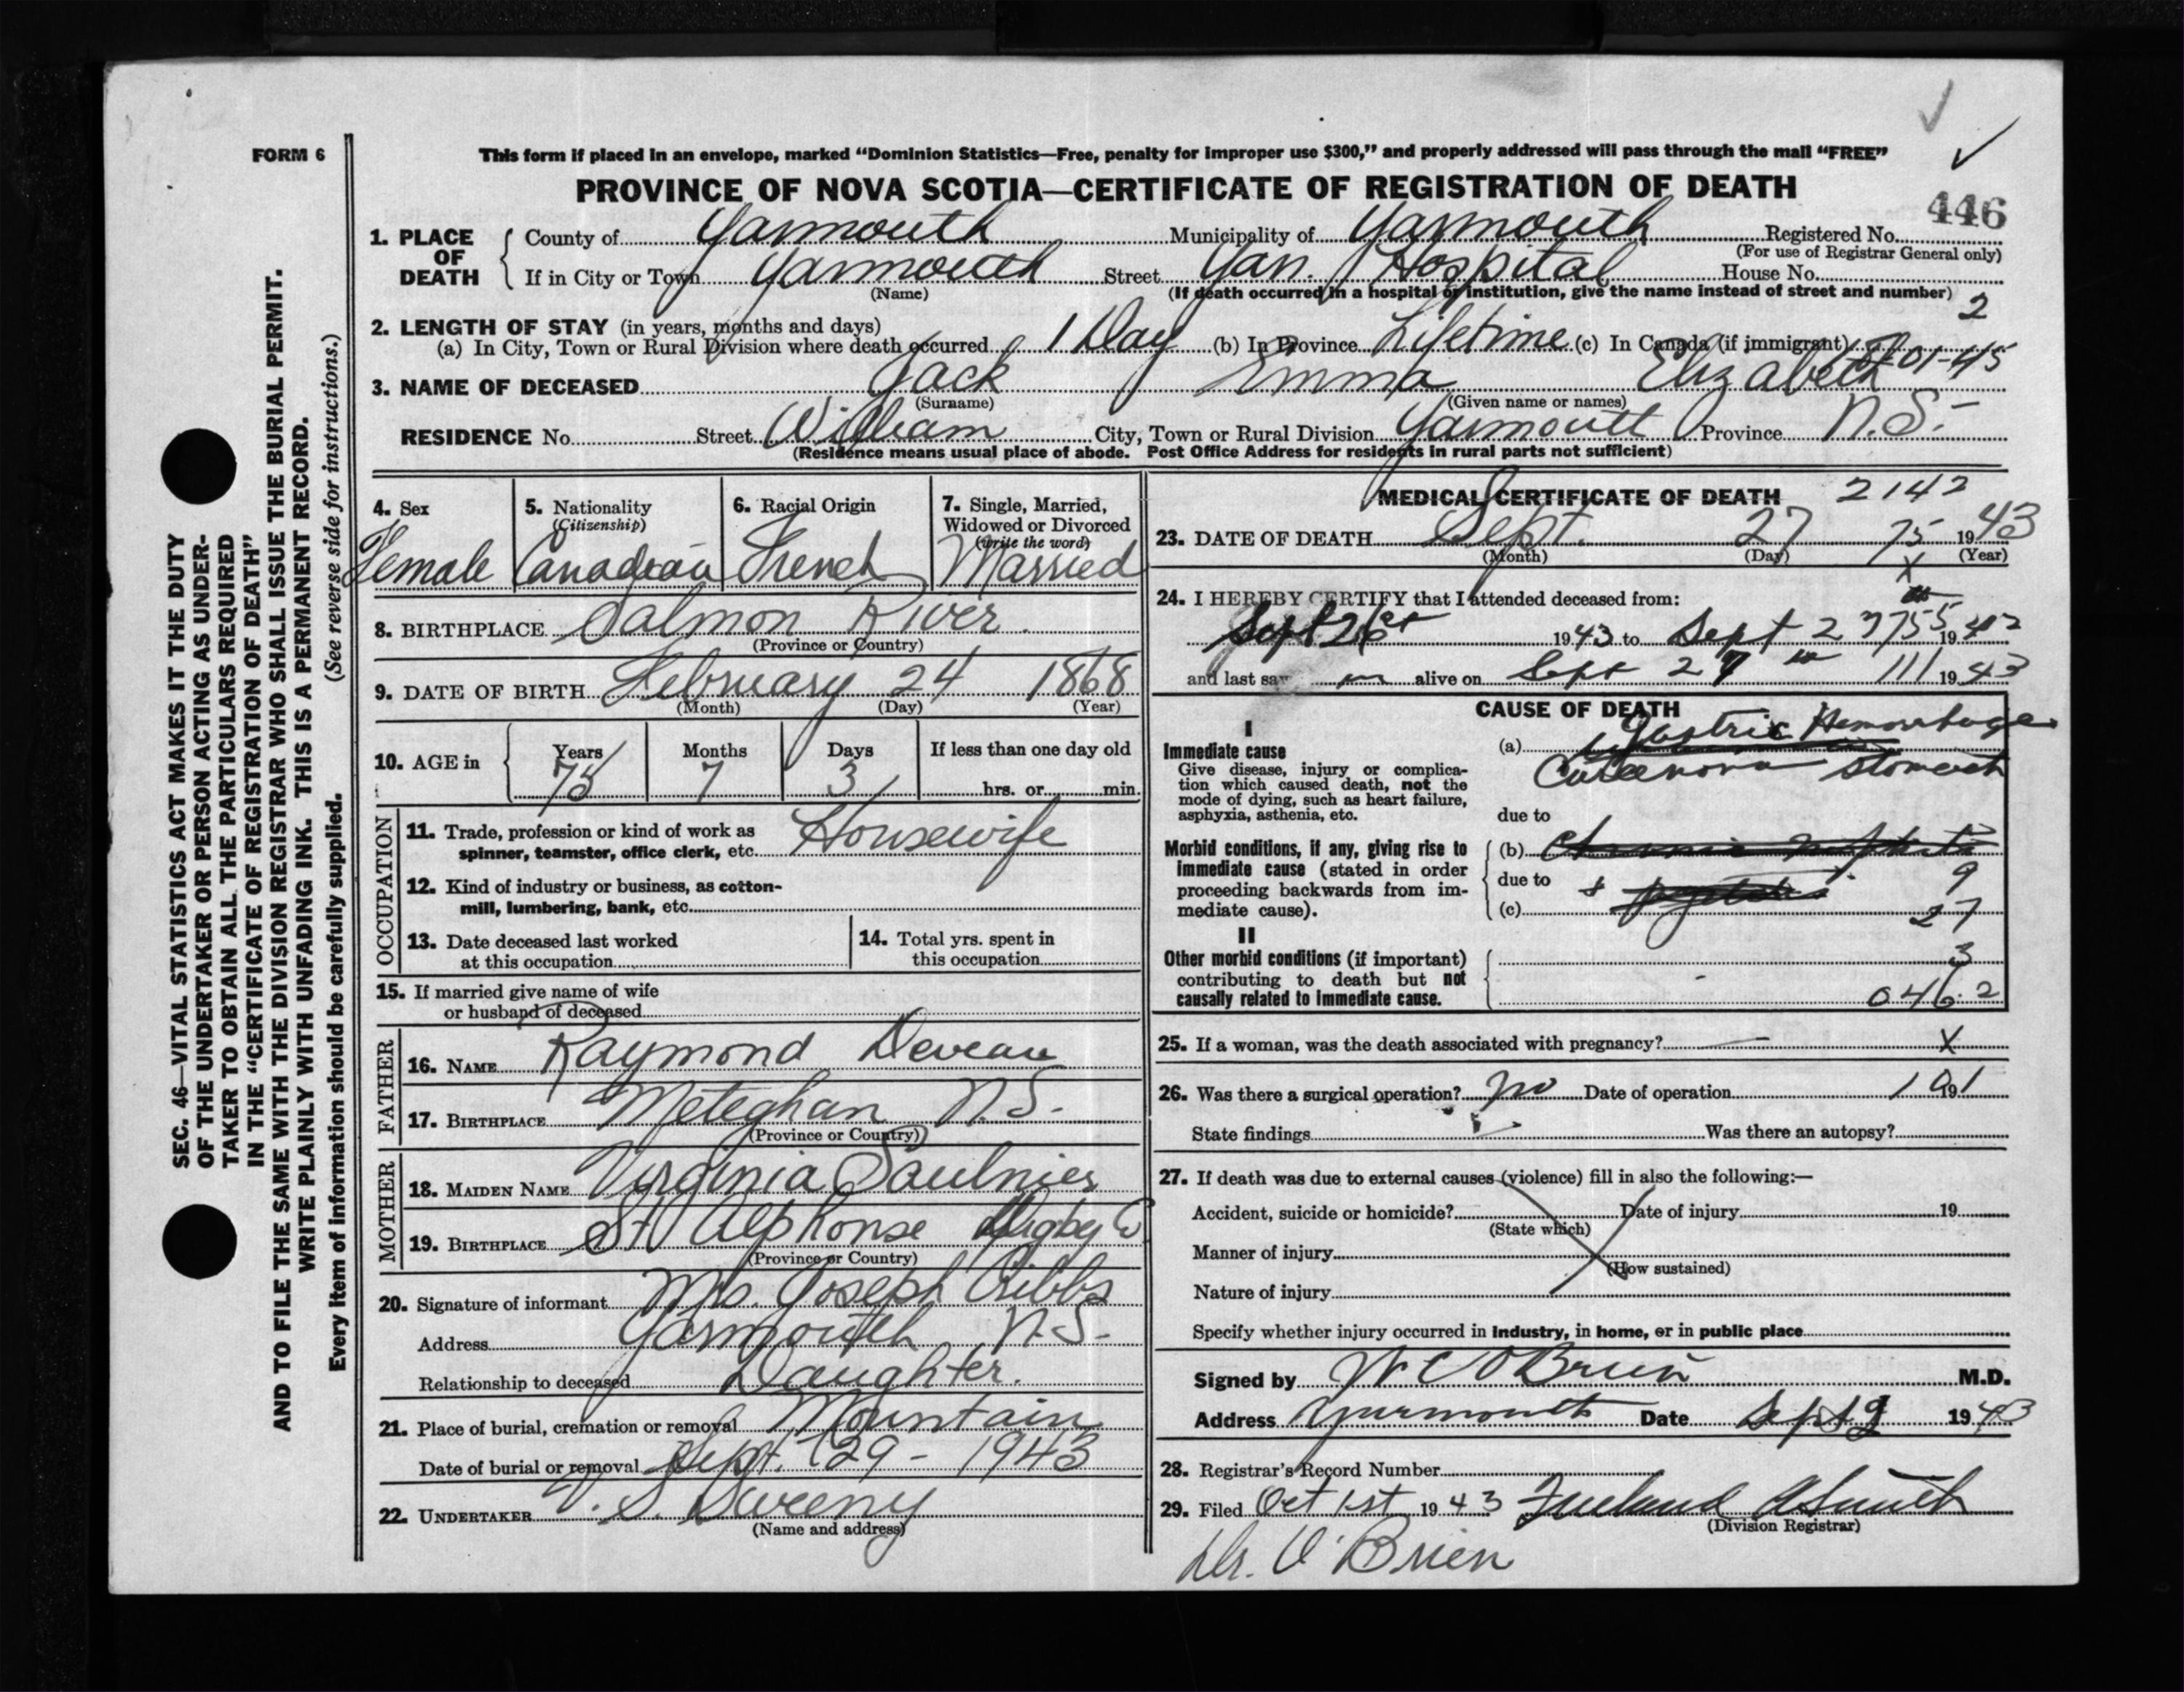 FORM 6
This form if placed in an envelope, marked “Dominion Statistics—Free, penalty for improper use $300,” and properly addressed will pass through the mail “FREE”
PROVINCE OF NOVA SCOTIA—CERTIFICATE OF REGISTRATION OF DEATH
446
1. PLACE OF DEATH
County of Yarmouth Municipality of Yarmouth Registered No.
(For use of Registrar General only)
If in City or Town Yarmouth Street Yar. Hospital House No.
(Name) (If death occurred in a hospital or institution, give the name instead of street and number)
2
2. LENGTH OF STAY (in years, months and days)
(a) In City, Town or Rural Division where death occurred 1 Day (b) In Province Lifetime (c) In Canada (if immigrant)
01-45
3. NAME OF DECEASED Jack Emma Elizabeth
(Surname) (Given name or names)
RESIDENCE No. Street William City, Town or Rural Division Yarmouth Province N.S.
(Residence means usual place of abode. Post Office Address for residents in rural parts not sufficient)
4. Sex
Female
5. Nationality
(Citizenship)
Canadian
6. Racial Origin
French
7. Single, Married,
Widowed or Divorced
(write the word)
Married
8. BIRTHPLACE Salmon River
(Province or Country)
9. DATE OF BIRTH February 24 1868
(Month) (Day) (Year)
10. AGE in Years Months Days If less than one day old
75 7 3 hrs. or min.
OCCUPATION
11. Trade, profession or kind of work as
spinner, teamster, office clerk, etc. Housewife
12. Kind of industry or business, as cotton-
mill, lumbering, bank, etc.
13. Date deceased last worked
at this occupation
14. Total yrs. spent in
this occupation
15. If married give name of wife
or husband of deceased
FATHER
16. NAME Raymond Deveau
17. BIRTHPLACE Meteghan N.S.
(Province or Country)
MOTHER
18. MAIDEN NAME Virginia Saulnier
19. BIRTHPLACE St Alphonse Digby C
(Province or Country)
20. Signature of informant Mrs. Joseph Cribbs
Address Yarmouth N.S.
Relationship to deceased Daughter.
21. Place of burial, cremation or removal Mountain
Date of burial or removal Sept. 29 - 1943
22. UNDERTAKER V. S. Sweeny
(Name and address)
MEDICAL CERTIFICATE OF DEATH 2142
23. DATE OF DEATH Sept. 27 75 1943
(Month) (Day) (Year)
X
24. I HEREBY CERTIFY that I attended deceased from:
Sept 26 1943 to Sept 27 755 1943
and last saw alive on Sept 27 111 1943
CAUSE OF DEATH
I
Immediate cause
Give disease, injury or complica-
tion which caused death, not the
mode of dying, such as heart failure,
asphyxia, asthenia, etc.
(a) Gastric Hemorrhage
Carcenoma stomach
due to
Morbid conditions, if any, giving rise to
immediate cause (stated in order
proceeding backwards from im-
mediate cause).
(b) Chronic Nephritis
due to
9
(c)
27
II
Other morbid conditions (if important)
contributing to death but not
causally related to immediate cause.
3
046.2
25. If a woman, was the death associated with pregnancy? — X
26. Was there a surgical operation? No Date of operation 19
State findings Was there an autopsy?
27. If death was due to external causes (violence) fill in also the following:—
Accident, suicide or homicide? Date of injury 19
(State which)
Manner of injury
(How sustained)
Nature of injury
Specify whether injury occurred in industry, in home, or in public place
Signed by W C O'Brien M.D.
Address Yarmouth Date Sept 1943
28. Registrar's Record Number
29. Filed Oct 1st 1943 Freeland A Smith
(Division Registrar)
Dr. O'Brien
SEC. 46—VITAL STATISTICS ACT MAKES IT THE DUTY
OF THE UNDERTAKER OR PERSON ACTING AS UNDER-
TAKER TO OBTAIN ALL THE PARTICULARS REQUIRED
IN THE “CERTIFICATE OF REGISTRATION OF DEATH”
AND TO FILE THE SAME WITH THE DIVISION REGISTRAR WHO SHALL ISSUE THE BURIAL PERMIT.
WRITE PLAINLY WITH UNFADING INK. THIS IS A PERMANENT RECORD.
Every item of information should be carefully supplied. (See reverse side for instructions.)